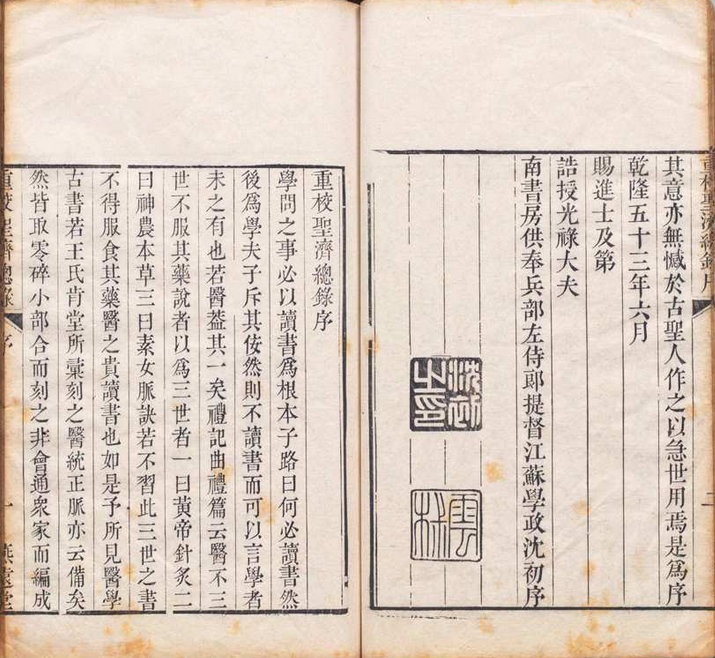 重校聖濟總錄序 二
其意亦無憾於古聖人作之以急世用焉是爲序
乾隆五十三年六月
賜進士及第
誥授光祿大夫
南書房供奉兵部左侍郎提督江蘇學政沈初序
沈初之印
重校聖濟總錄序
學問之事必以讀書爲根本子路曰何必讀書然
後爲學夫子斥其佞然則不讀書而可以言學者
未之有也若醫葢其一矣禮記曲禮篇云醫不三
世不服其藥說者以爲三世者一曰黃帝針炙二
曰神農本草三曰素女脈訣若不習此三世之書
不得服食其藥醫之貴讀書也如是予所見醫學
古書若王氏肯堂所彙刻之醫統正脈亦云備矣
然皆取零碎小部合而刻之非會通衆家而編成
重校聖濟總錄 序 一